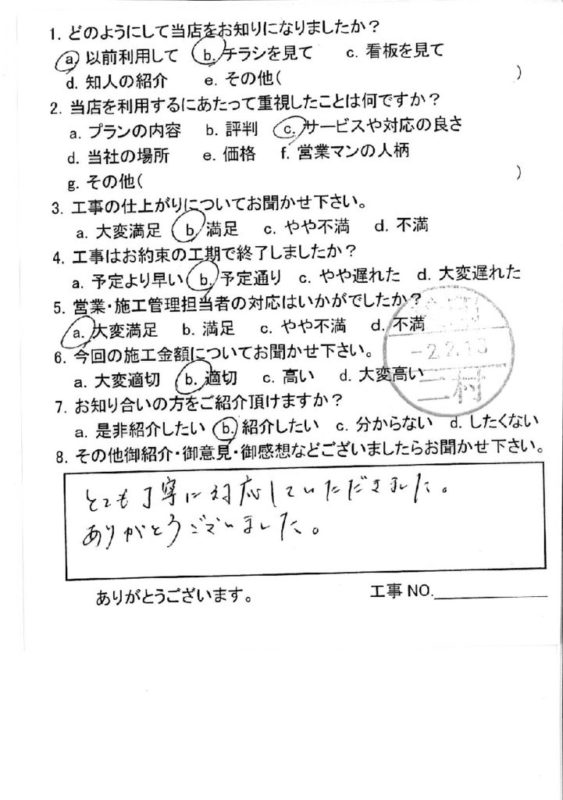 1. どのようにして当店をお知りになりましたか？
a. 以前利用して b. チラシを見て c. 看板を見て
d. 知人の紹介 e. その他( )
2. 当店を利用するにあたって重視したことは何ですか？
a. プランの内容 b. 評判 c. サービスや対応の良さ
d. 当社の場所 e. 価格 f. 営業マンの人柄
g. その他( )
3. 工事の仕上がりについてお聞かせ下さい。
a. 大変満足 b. 満足 c. やや不満 d. 不満
4. 工事はお約束の工期で終了しましたか？
a. 予定より早い b. 予定通り c. やや遅れた d. 大変遅れた
5. 営業・施工管理担当者の対応はいかがでしたか？
a. 大変満足 b. 満足 c. やや不満 d. 不満
6. 今回の施工金額についてお聞かせ下さい。
a. 大変適切 b. 適切 c. 高い d. 大変高い
-2.2.13
二村
7. お知り合いの方をご紹介頂けますか？
a. 是非紹介したい b. 紹介したい c. 分からない d. したくない
8. その他御紹介・御意見・御感想などございましたらお聞かせ下さい。
とても丁寧に対応していただきました。
ありがとうございました。
ありがとうございます。 工事 NO.